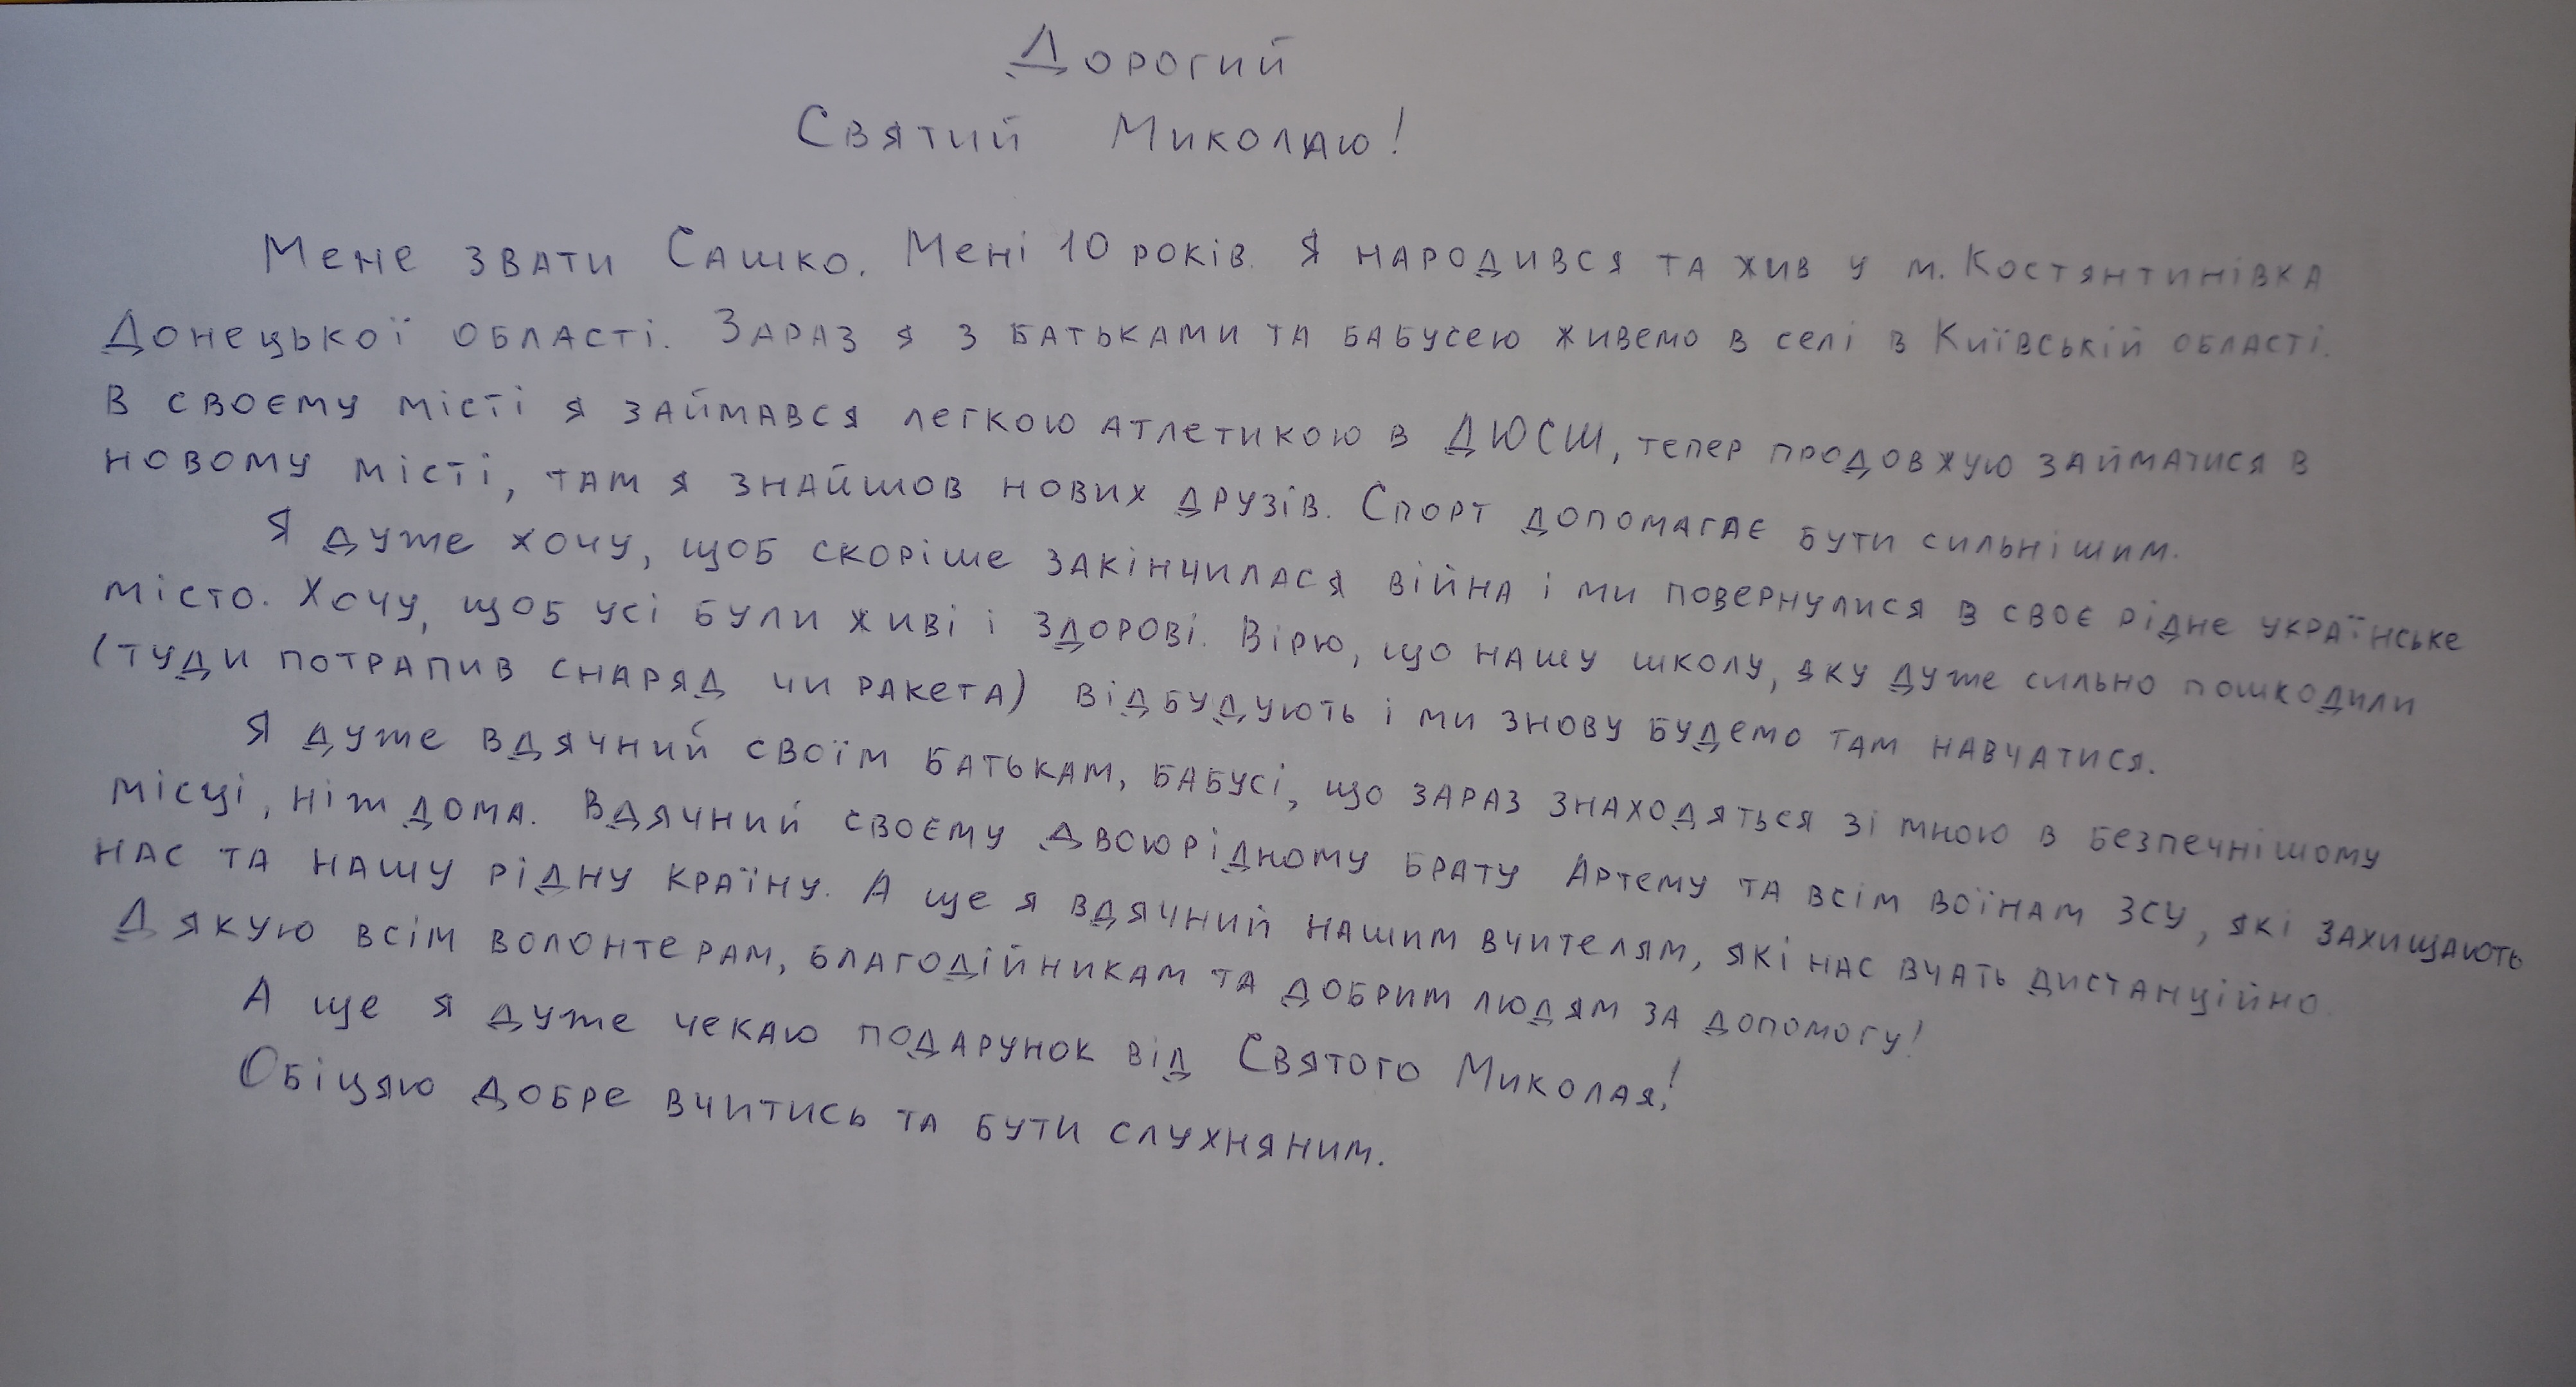 Дорогий
Святий Миколаю!
Мене звати Сашко. Мені 10 років. Я народився та жив у м. Костянтинівка
Донецької області. Зараз я з батьками та бабусею живемо в селі в Київській області.
В своєму місті я займався легкою атлетикою в ДЮСШ, тепер продовжую займатися в
новому місті, там я знайшов нових друзів. Спорт допомагає бути сильнішим.
Я дуже хочу, щоб скоріше закінчилася війна і ми повернулися в своє рідне українське
місто. Хочу, щоб усі були живі і здорові. Вірю, що нашу школу, яку дуже сильно пошкодили
(туди потрапив снаряд чи ракета) відбудують і ми знову будемо там навчатися.
Я дуже вдячний своїм батькам, бабусі, що зараз знаходяться зі мною в безпечнішому
місці, ніж дома. Вдячний своєму двоюрідному брату Артему та всім воїнам ЗСУ, які захищають
нас та нашу рідну країну. А ще я вдячний нашим вчителям, які нас вчать дистанційно.
Дякую всім волонтерам, благодійникам та добрим людям за допомогу!
А ще я дуже чекаю подарунок від Святого Миколая!
Обіцяю добре вчитись та бути слухняним.